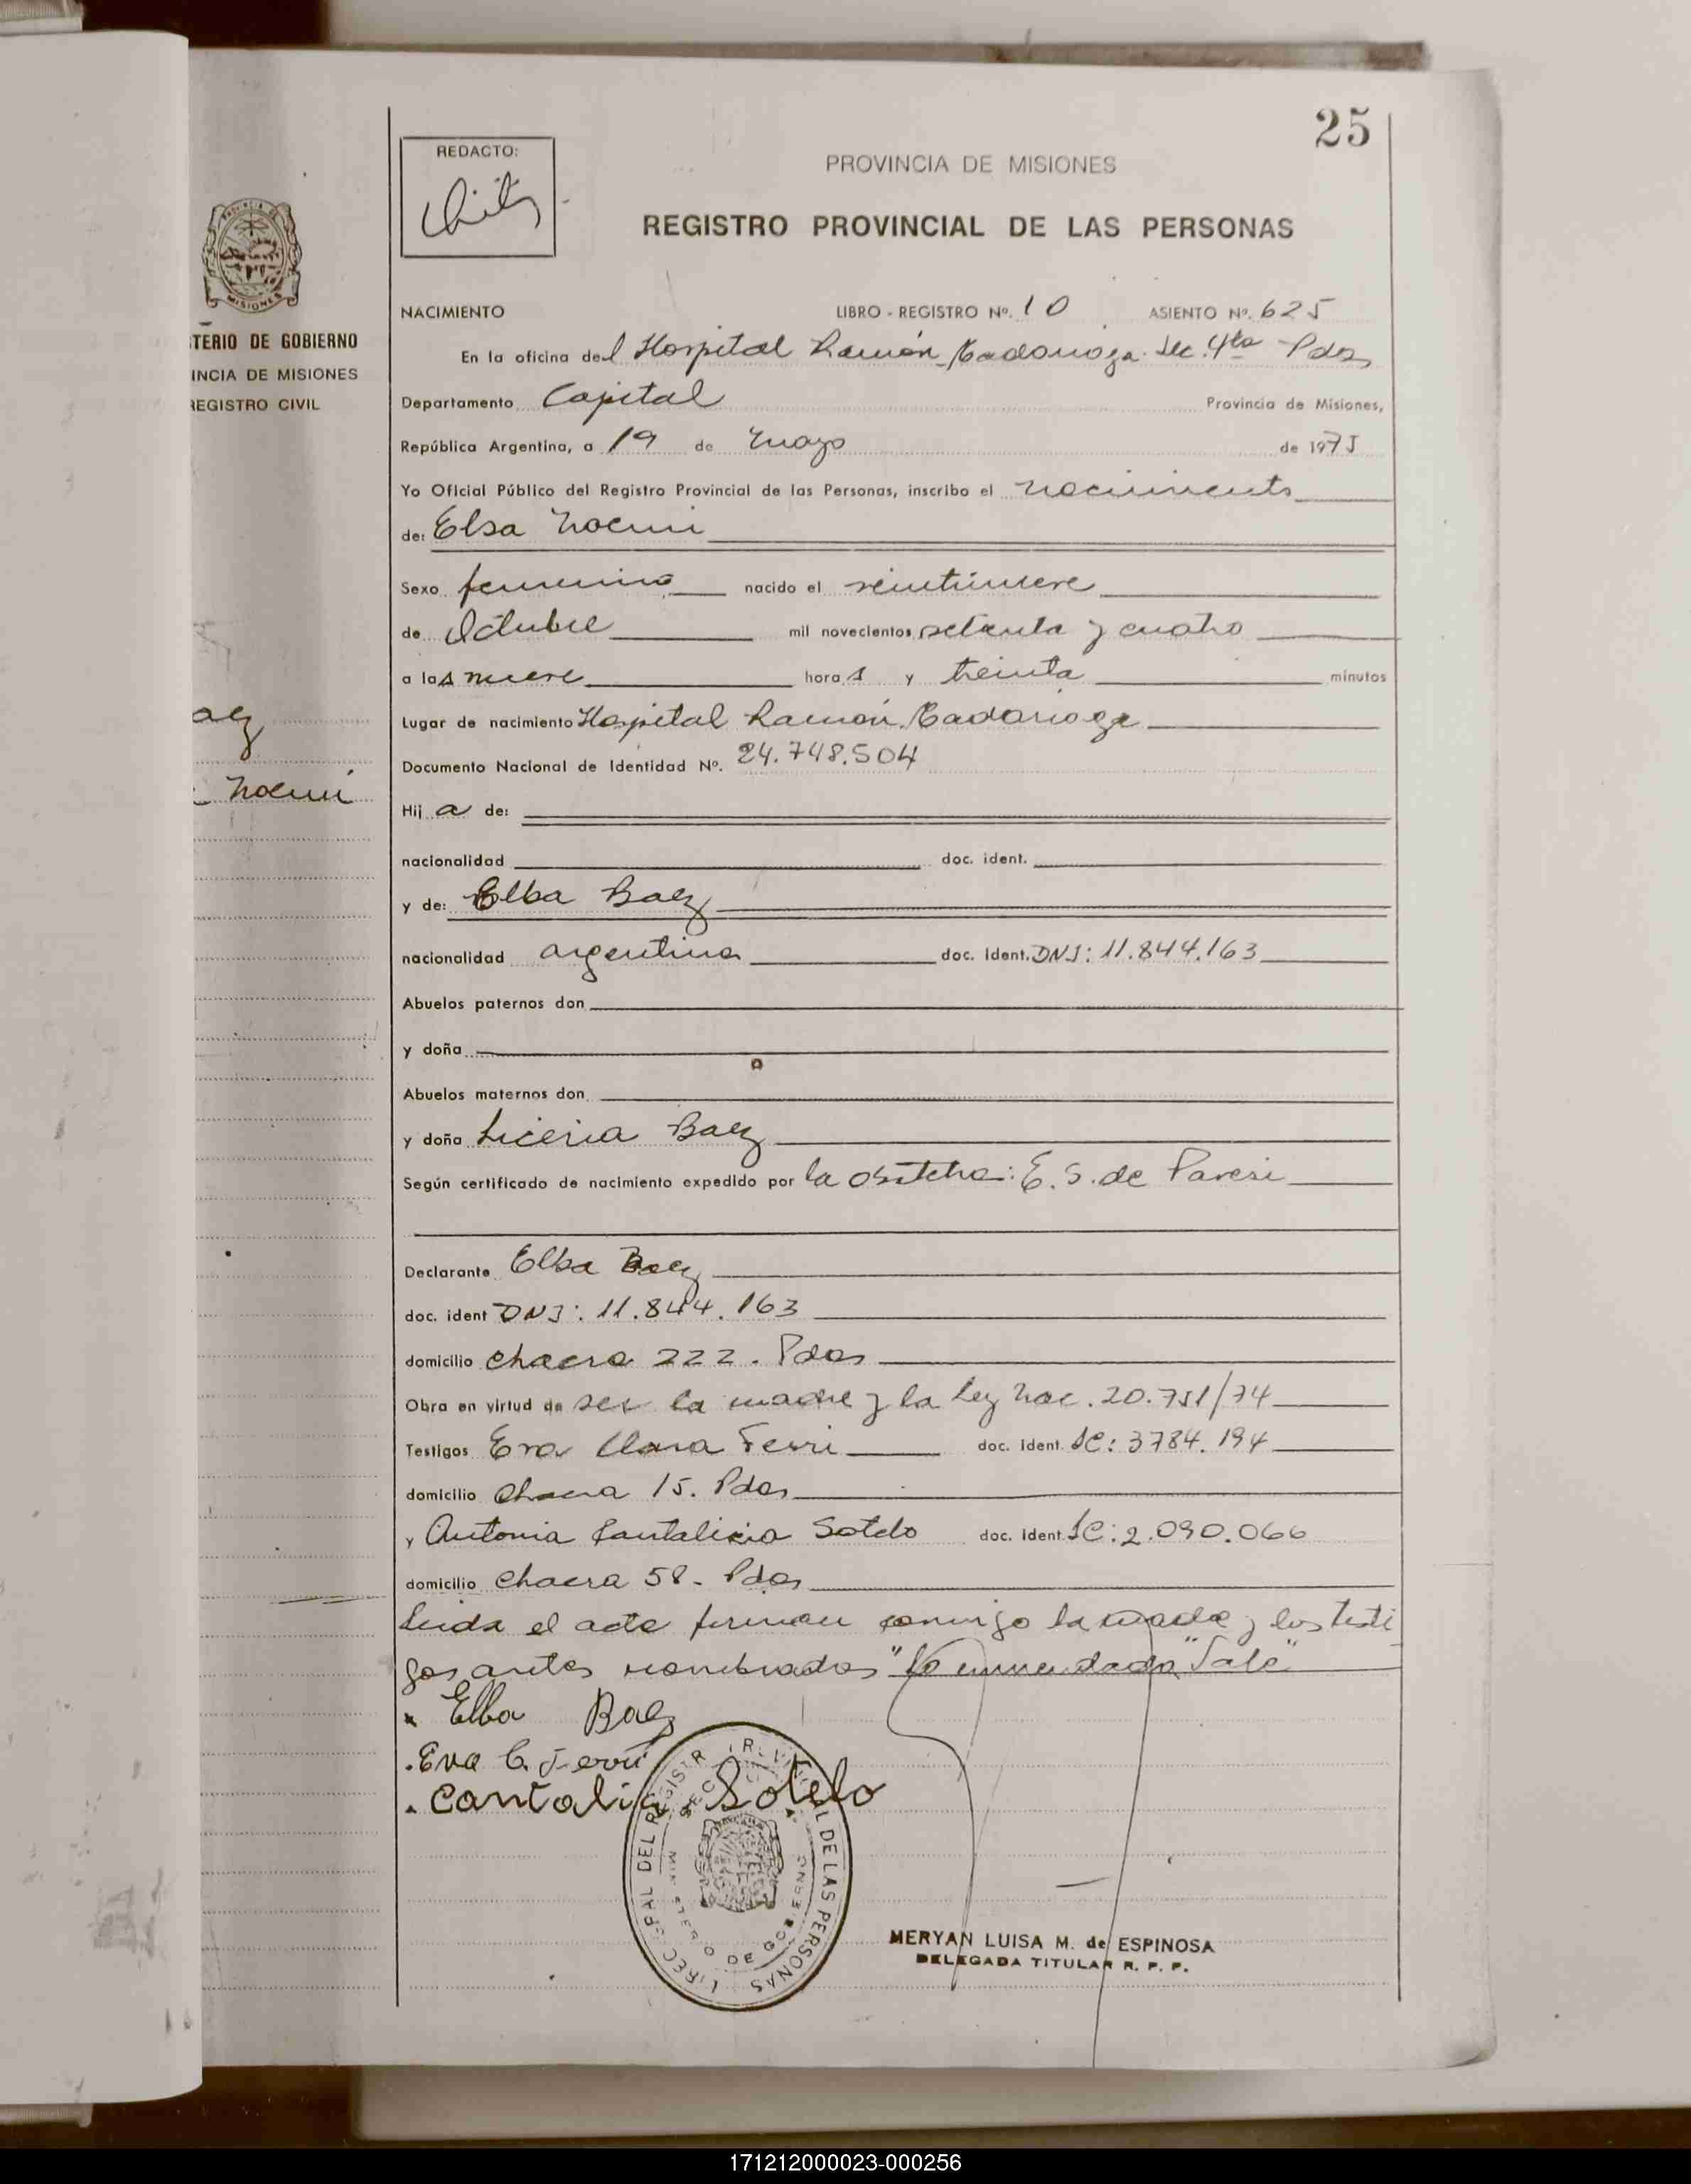 25
REDACTO:
PROVINCIA DE MISIONES
REGISTRO PROVINCIAL DE LAS PERSONAS
MISIONES
TERIO DE GOBIERNO
INCIA DE MISIONES
REGISTRO CIVIL
aez
Noemi
NACIMIENTO LIBRO - REGISTRO Nº. 10 ASIENTO Nº. 625
En la oficina del Hospital Ramón Madariaga. Sec. 4ta Pdas
Departamento Capital Provincia de Misiones,
República Argentina, a 19 de mayo de 1975
Yo Oficial Público del Registro Provincial de las Personas, inscribo el nacimiento
de: Elsa Noemi
Sexo femenino nacido el veintinueve
de Octubre mil novecientos setenta y cuatro
a las nueve horas y treinta minutos
Lugar de nacimiento Hospital Ramón Madariaga
Documento Nacional de Identidad Nº. 24.748.504
Hija de:
nacionalidad doc. ident.
y de: Elba Baez
nacionalidad argentina doc. ident. DNI: 11.844.163
Abuelos paternos don
y doña
Abuelos maternos don
y doña Liceria Baez
Según certificado de nacimiento expedido por la obstetra: E. S. de Paresi
Declarante Elba Baez
doc. ident DNI: 11.844.163
domicilio chacra 222. Pdas
Obra en virtud de ser la madre y la Ley Nac. 20.751/74
Testigos Eva Clara Ferri doc. ident. LC: 3784.194
domicilio Chacra 15. Pdas
y Antonia Cantalicia Sotelo doc. ident. LC: 2.090.066
domicilio chacra 58 - Pdas
Leida el acta firman conmigo la madre y los testi
gos antes nombrados "Lo enmendado Vale"
Elba Baez
Eva C. Ferri
Cantalicia Sotelo
DEL REGISTR DE LAS PERSONAS
DE GOBIERNO
MERYAN LUISA M. de ESPINOSA
DELEGADA TITULAR R. P. P.
171212000023-000256